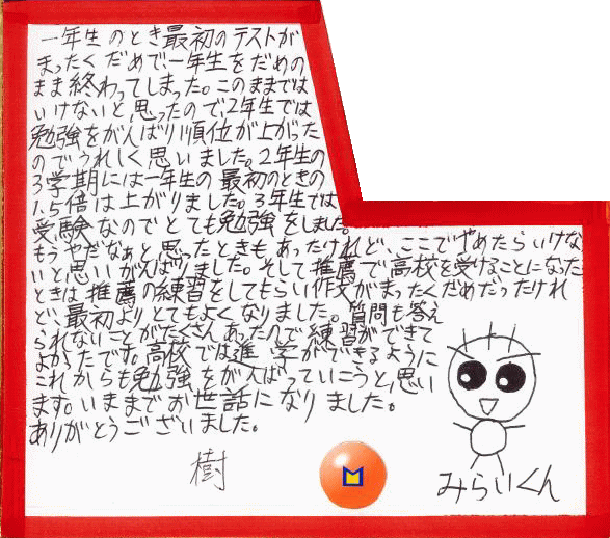 一年生のとき最初のテストが
まったくだめで一年生をだめの
まま終わってしまった。このままでは
いけないと思ったので、2年生では
勉強をがんばり順位が上がった
のでうれしく思いました。2年生の
3学期には一年生の最初のときの
1.5倍は上がりました。3年生では
受験なのでとても勉強をしました。
もうやだなぁと思ったときもあったけれど、ここでやめたらいけな
いと思いがんばりました。そして推薦で高校を受けることになった
ときは推薦の練習をしてもらい作文がまったくだめだったけれ
ど、最初よりとてもよくなりました。質問も答え
られないことがたくさんあったので練習ができて
よかったです。高校では進学ができるように
これからも勉強をがんばっていこうと思い
ます。いままでお世話になりました。
ありがとうございました。
樹
M
みらいくん